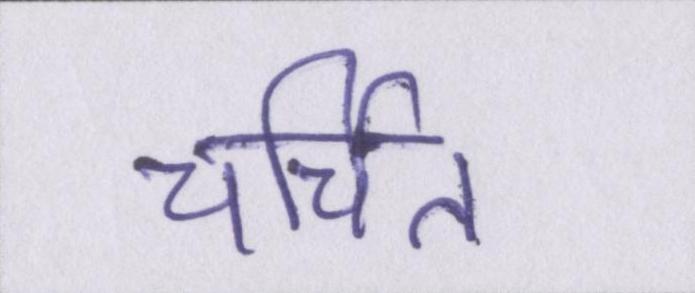 चर्चित